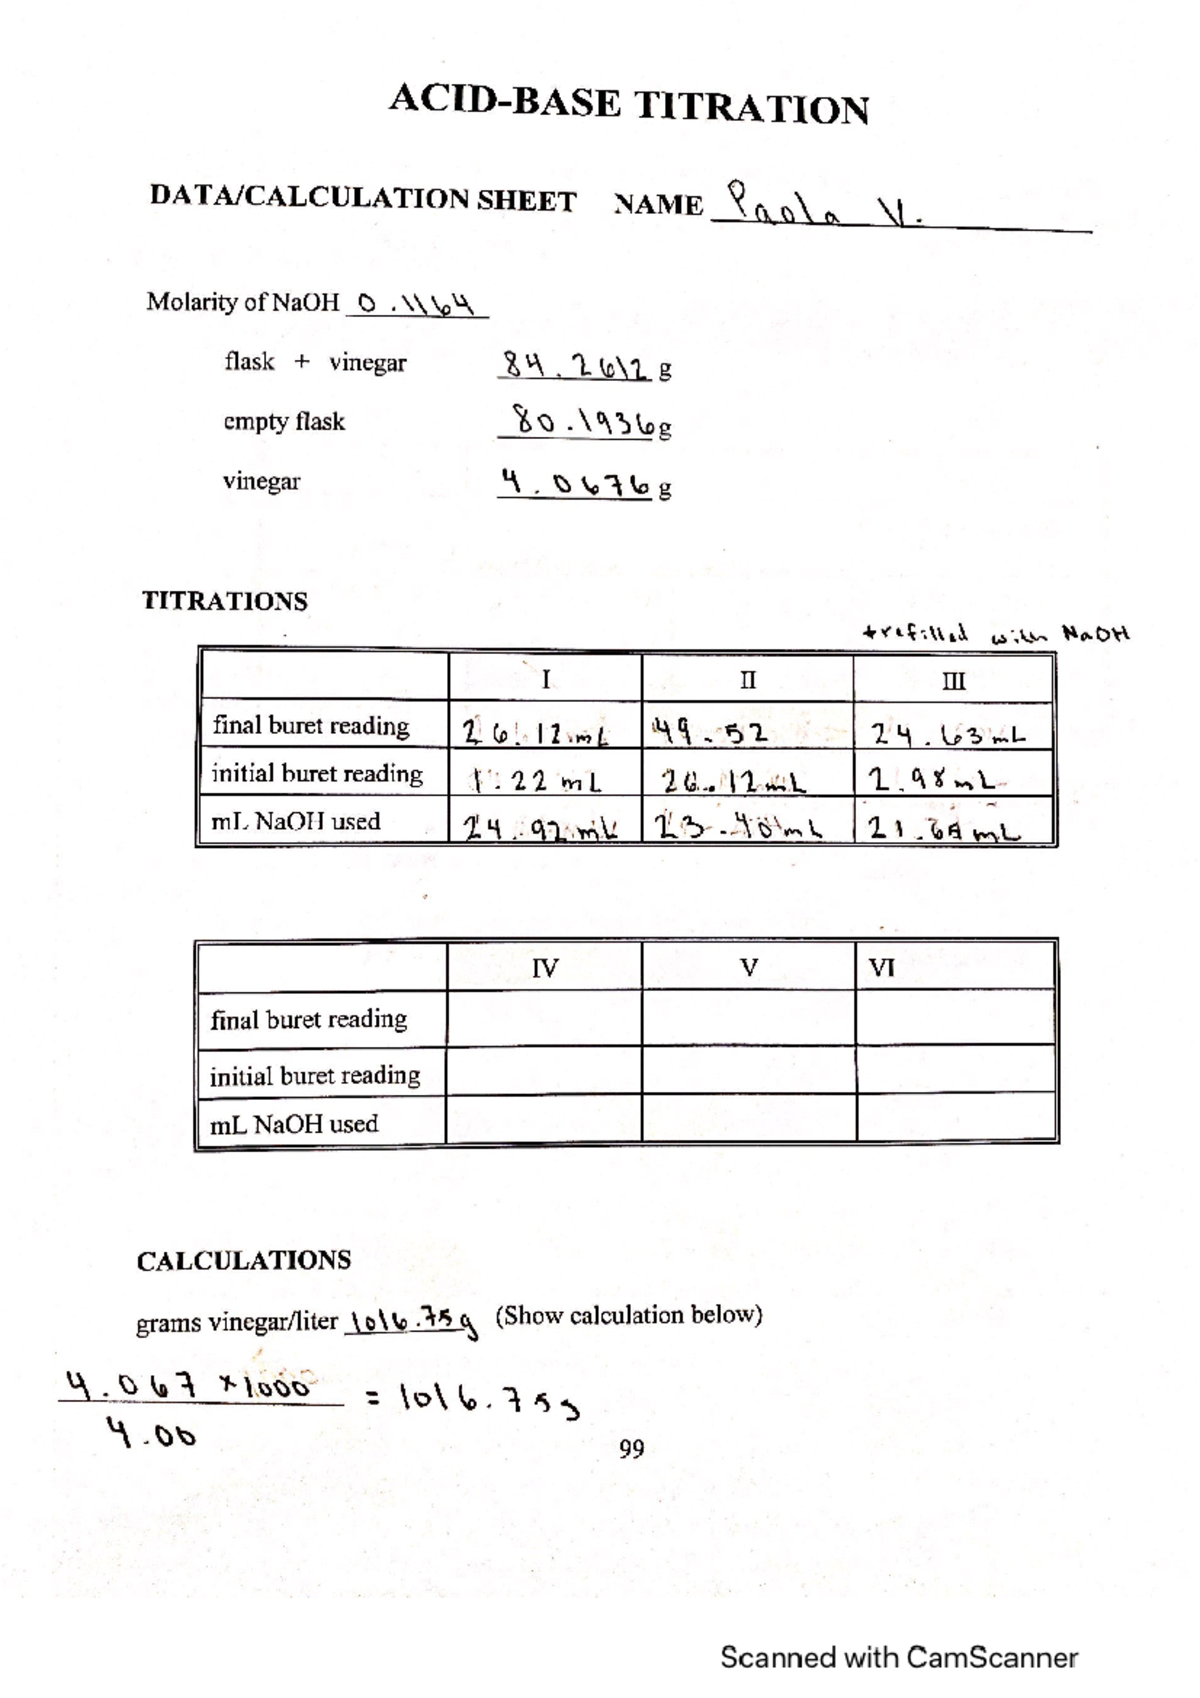 ACID-BASE TITRATION
DATA/CALCULATION SHEET NAME Paola V.
Molarity of NaOH 0.1164
flask + vinegar 84.2612 g
empty flask 80.1936g
vinegar 4.0676 g
TITRATIONS
*refilled with NaOH
I II III
final buret reading 26.12 mL 49.52 24.63 mL
initial buret reading 1.22 mL 26.12 mL 2.98 mL
mL NaOH used 24.92 mL 23.40 mL mL
IV V VI
final buret reading
initial buret reading
mL NaOH used
CALCULATIONS
grams vinegar/liter 1016.75g (Show calculation below)
4.067 x1000
= 1016.75g
4.00
99
Scanned with CamScanner